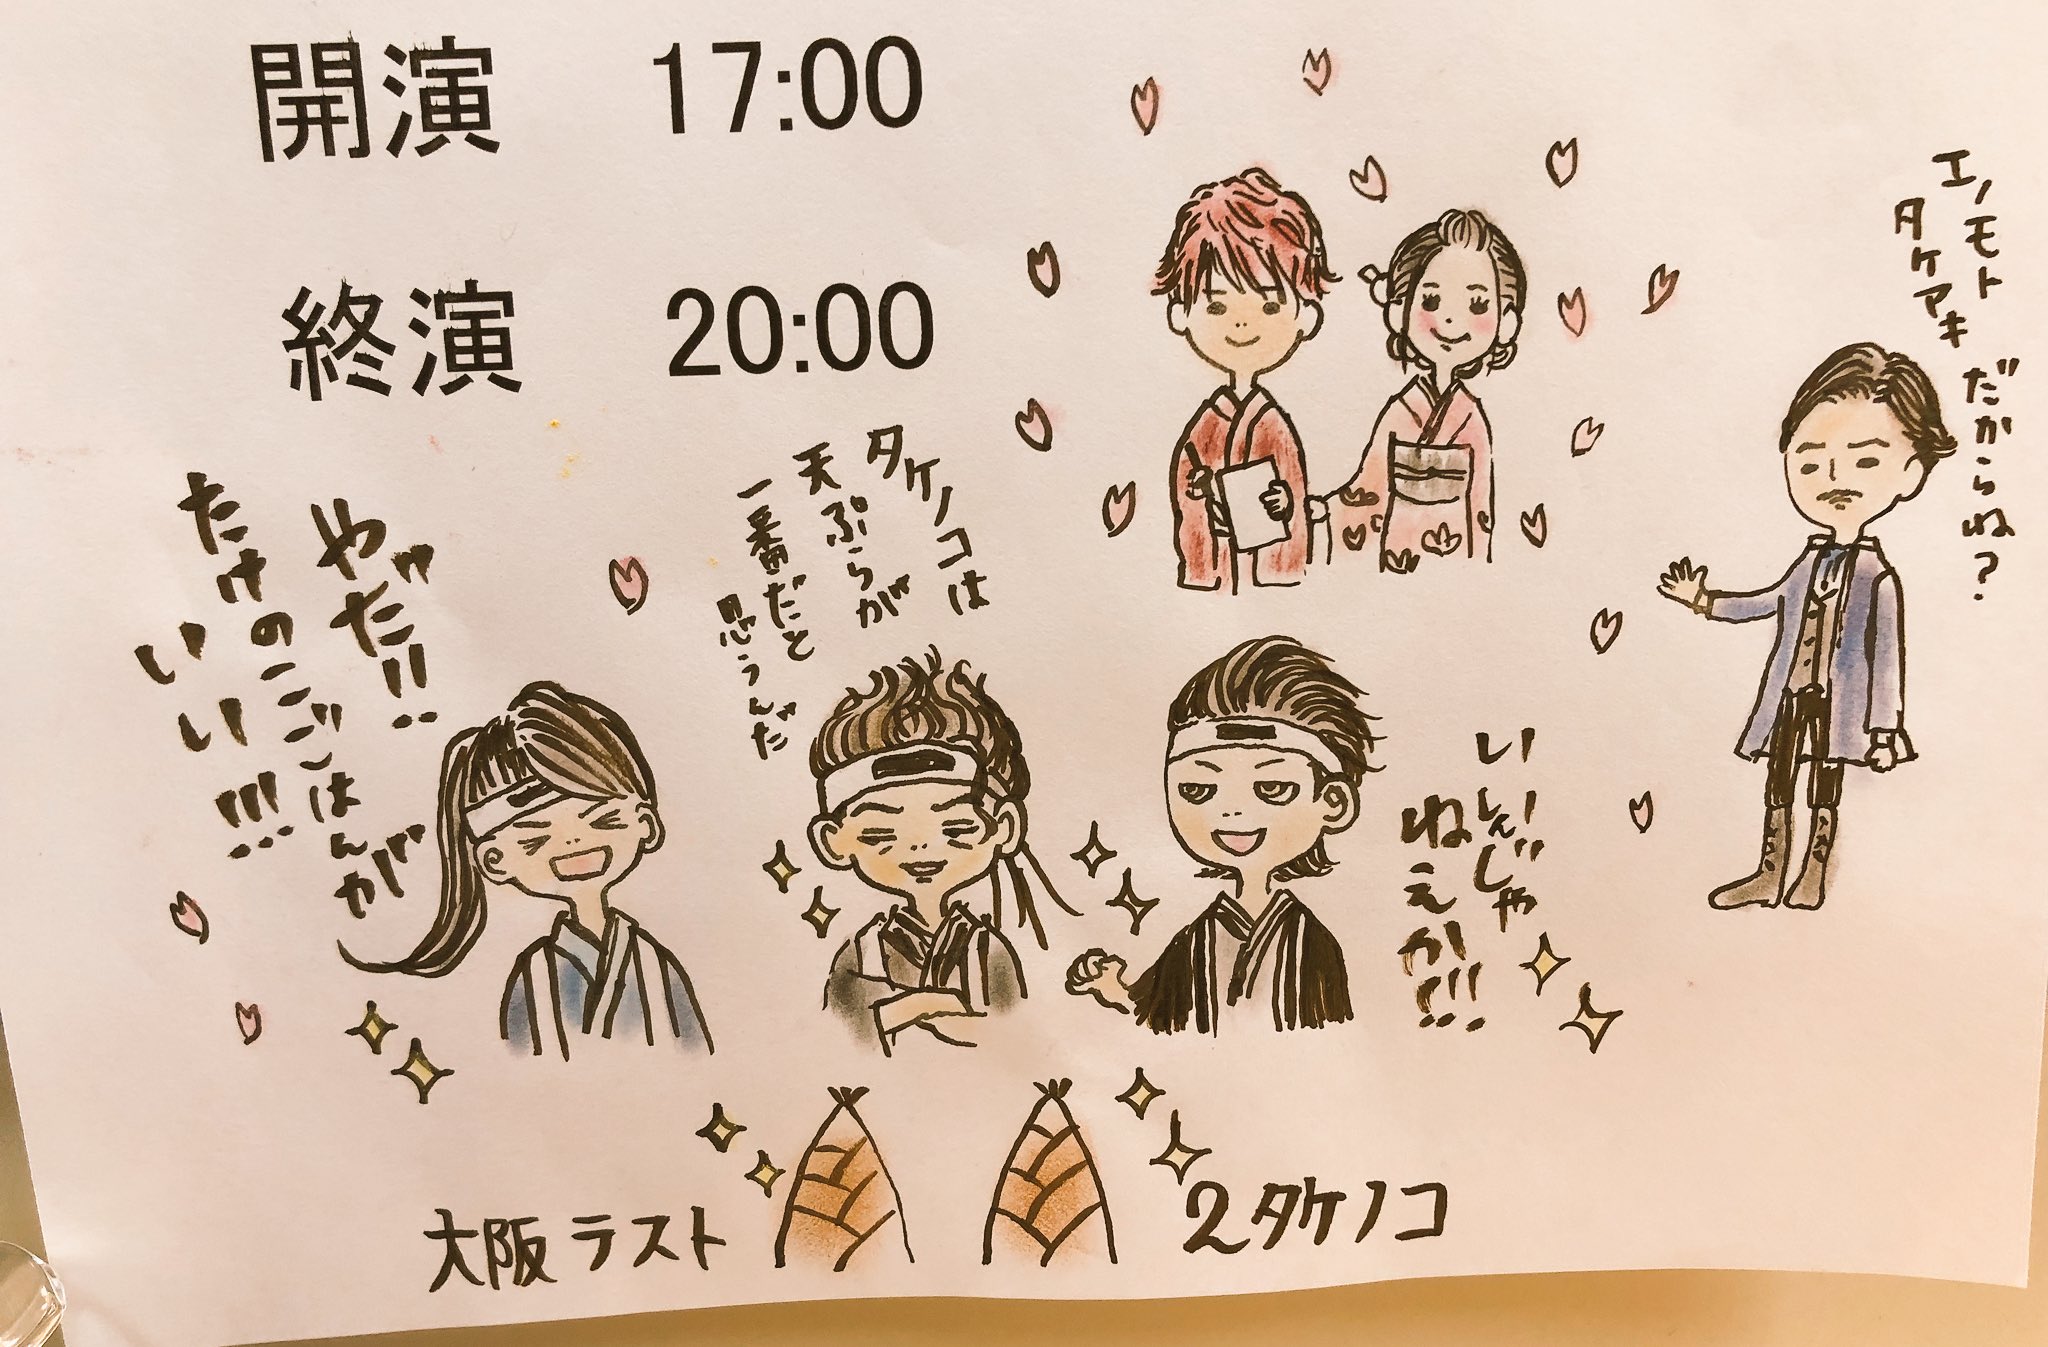 開演 17:00
終演 20:00
エノモト
タケアキ
だからね?
タケノコは
天ぷらが
一番だと
思うんだ
やだ!!
たけのこごはんが
いい!!!
いいじゃ
ねえか!!!
大阪ラスト 2タケノコ